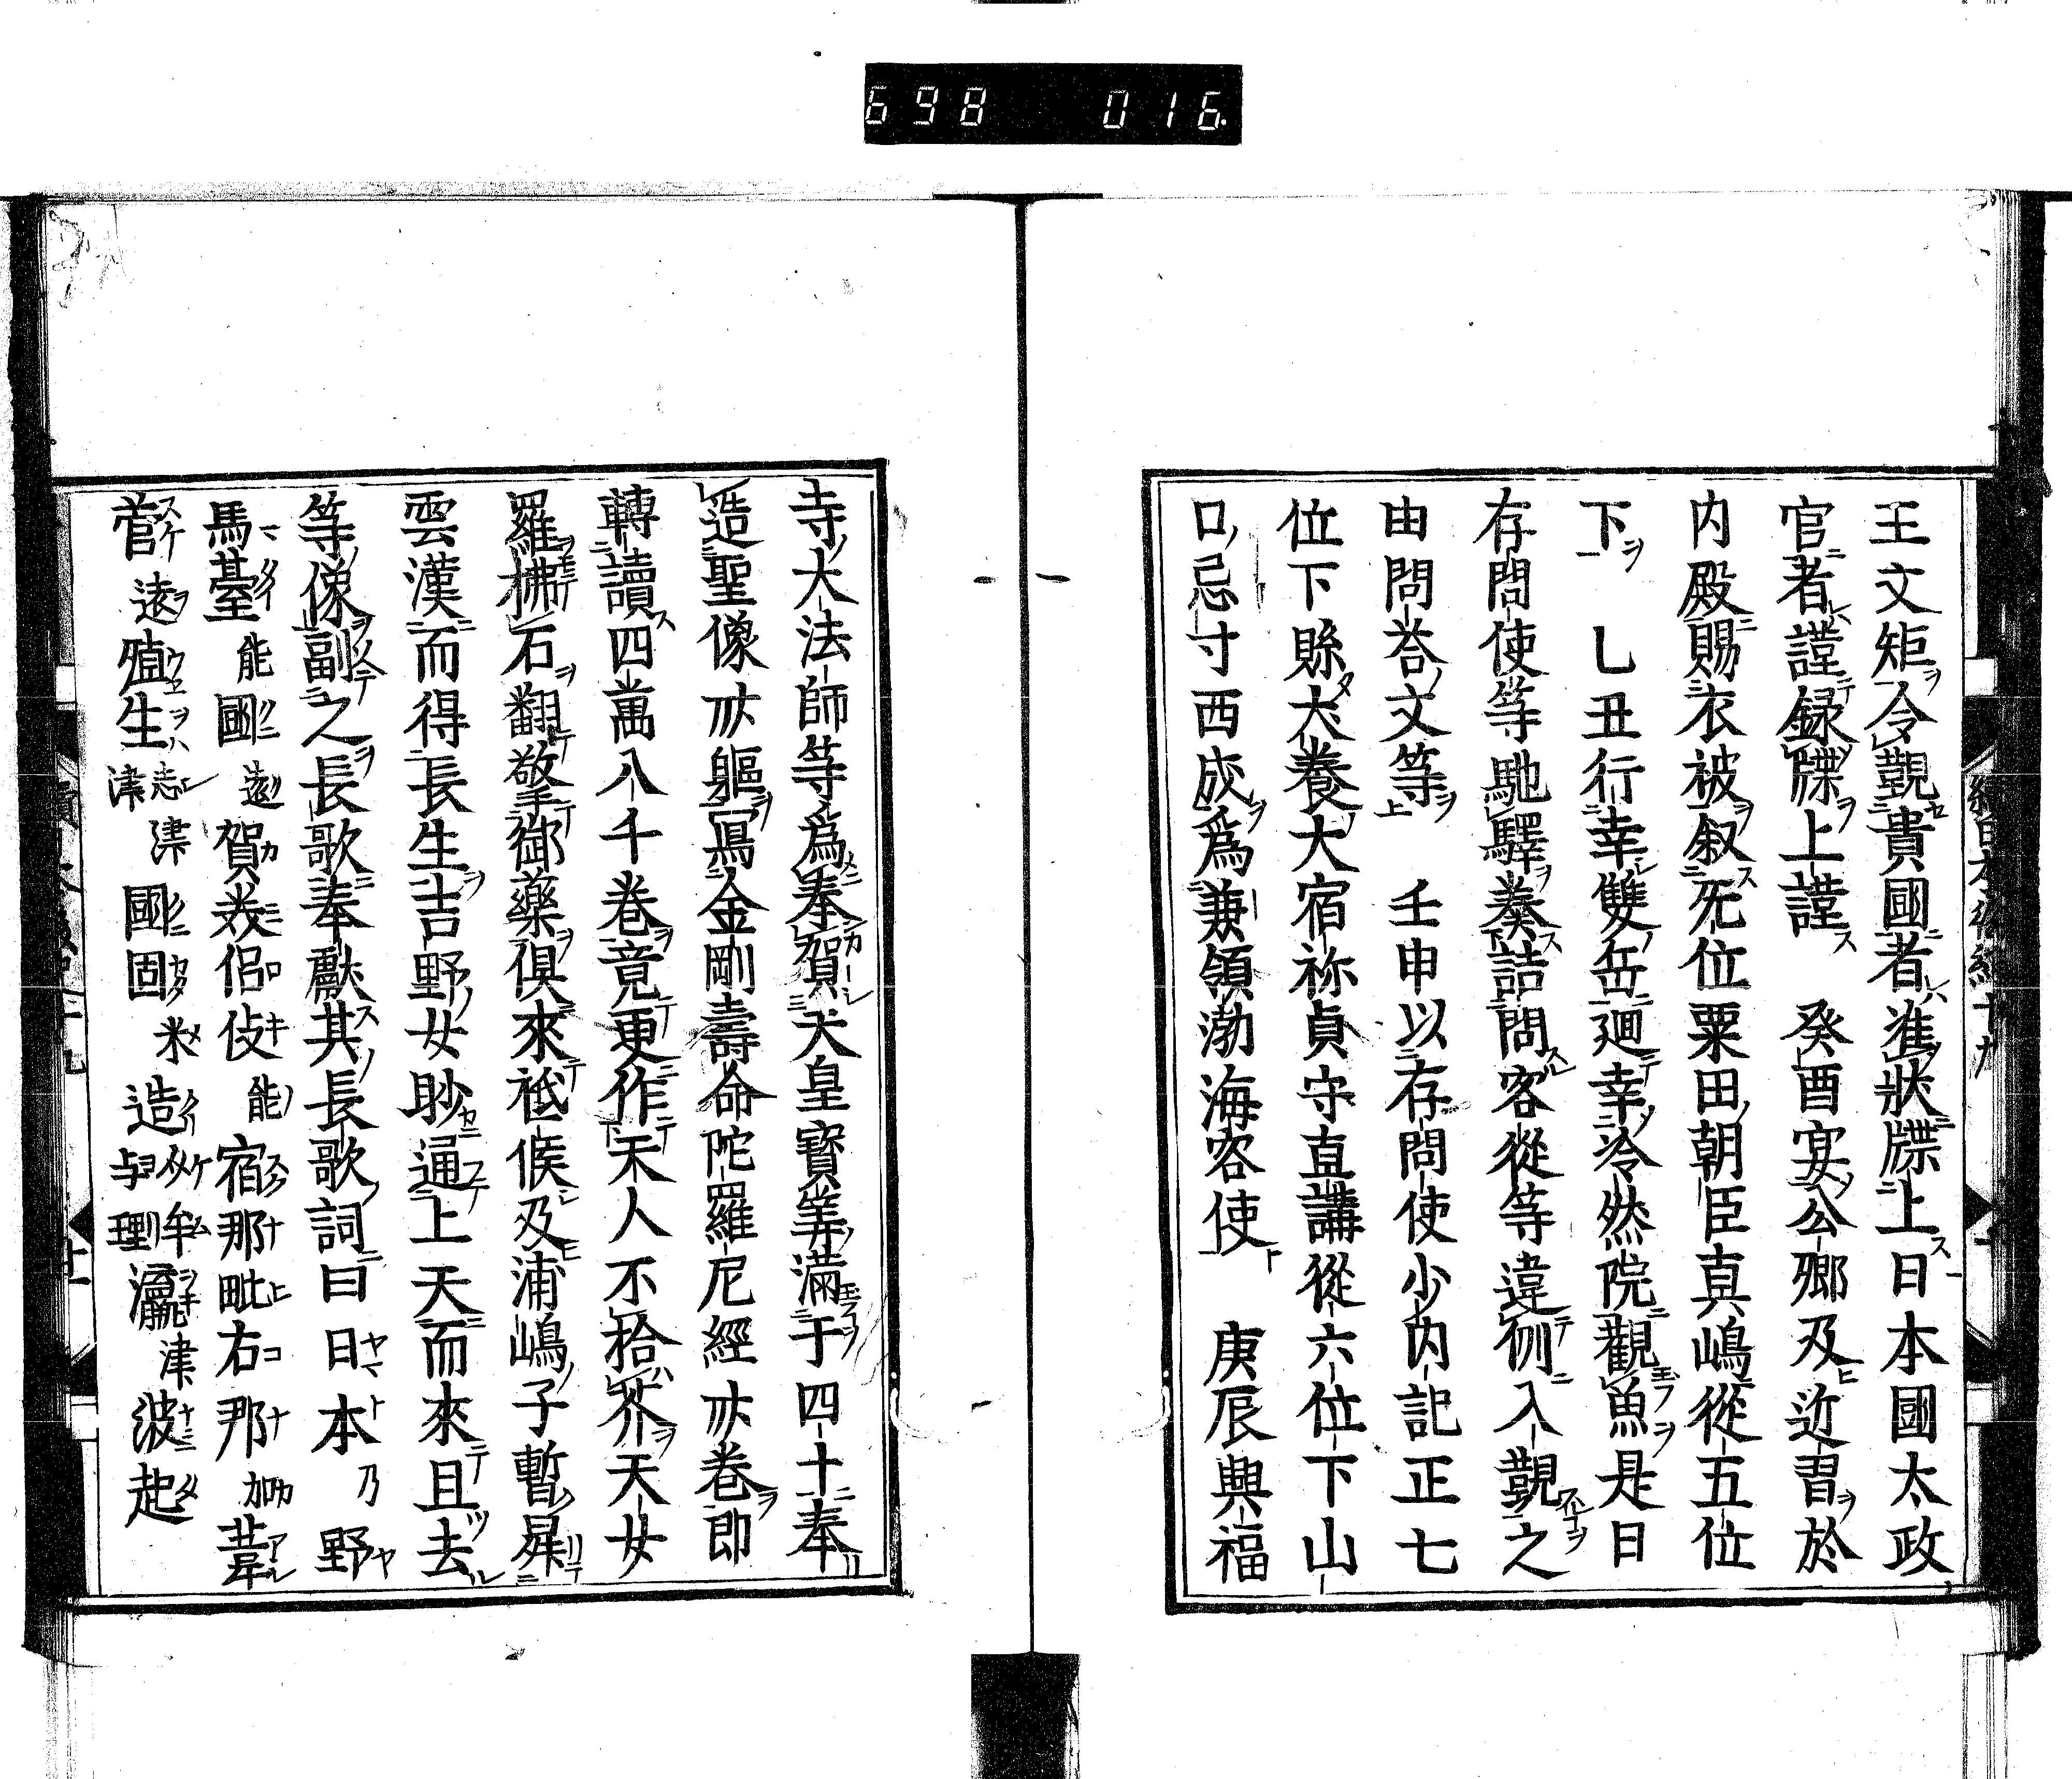 698 016
王文矩令覲貴國者准狀牒上日本國太政
官者謹録牒上謹　癸酉宴公卿及近習於
内殿賜衣被叙无位粟田朝臣真嶋從五位
下　乚丑行幸雙岳廻幸冷然院觀魚是日
存問使等馳驛奏詰問客從等違例入覲之
由問荅文等　壬申以存問使少内記正七
位下縣犬養大宿祢貞守直講從六位下山
口忌寸西成爲兼領渤海客使　庚辰興福
寺大法師等爲奉賀天皇寳筭滿于四十奉
造聖像卌軀寫金剛壽命陀羅尼經卌卷即
轉讀四萬八千卷竟更作天人不拾芥天女
羅拂石翻擎御藥俱來祗候及浦嶋子暫昇
雲漢而得長生吉野女眇通上天而來且去
等像副之長歌奉獻其長歌詞曰日本乃野
馬臺能國遠賀美侶伎能宿那毗古那加葦
菅遠殖生志津津國固米造介牟与理瀛津波起